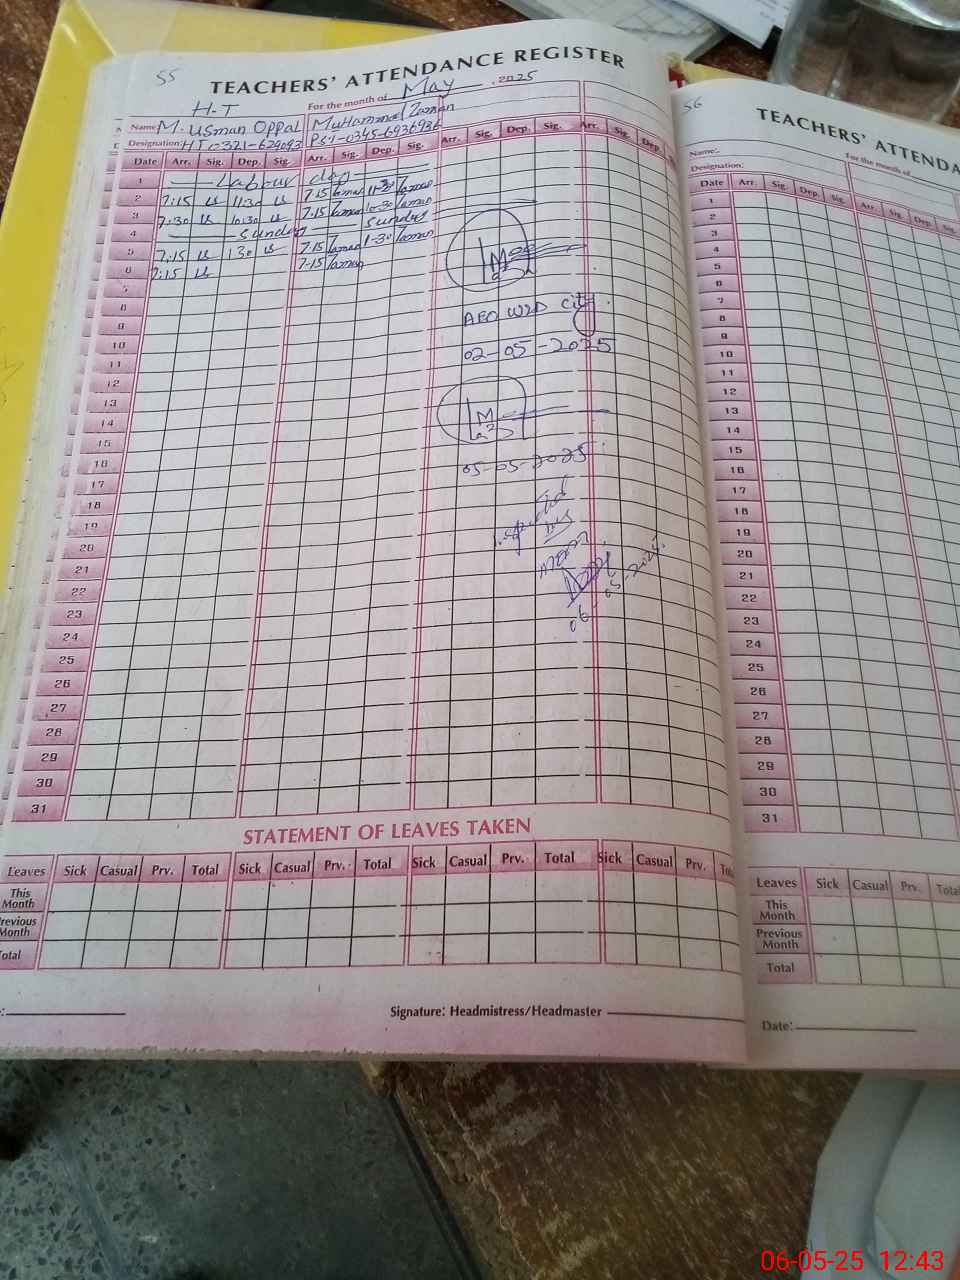 55
TEACHERS' ATTENDANCE REGISTER
H-T
For the month of May, 2025
Name M. Usman Oppal Muhammad Zaman
Designation: HT
Date Arr. Sig. Dep. Sig. Arr. Sig. Dep. Sig. Arr. Sig. Dep. Sig. Arr. Sig. Dep.
1 Labour day
2 7:15 11:30 7:15 Zaman 11-30 Zaman
3 7:30 10:30 7:15 Zaman 10-30 Zaman
4 Sunday Sunday
5 7:15 1:30 7:15 Zaman 1-30 Zaman
6 7:15 7:15 Zaman
7
8
AEO WZD City
9
10
02-05-2025
11
12
13
14
15
16
05-05-2025
17
18
19
20
21
22
06-05-2025
23
24
25
26
27
28
29
30
31
STATEMENT OF LEAVES TAKEN
Leaves Sick Casual Prv. Total Sick Casual Prv. Total Sick Casual Prv. Total Sick Casual Prv.
This Month
Previous Month
Total
Signature: Headmistress/Headmaster
56
TEACHERS' ATTENDA
Name:
For the month of
Designation:
Date Arr. Sig. Dep. Sig. Arr. Sig. Dep. Sig.
1
2
3
4
5
6
7
8
9
10
11
12
13
14
15
16
17
18
19
20
21
22
23
24
25
26
27
28
29
30
31
Leaves Sick Casual Prv. Total
This Month
Previous Month
Total
Date:
06-05-25 12:43